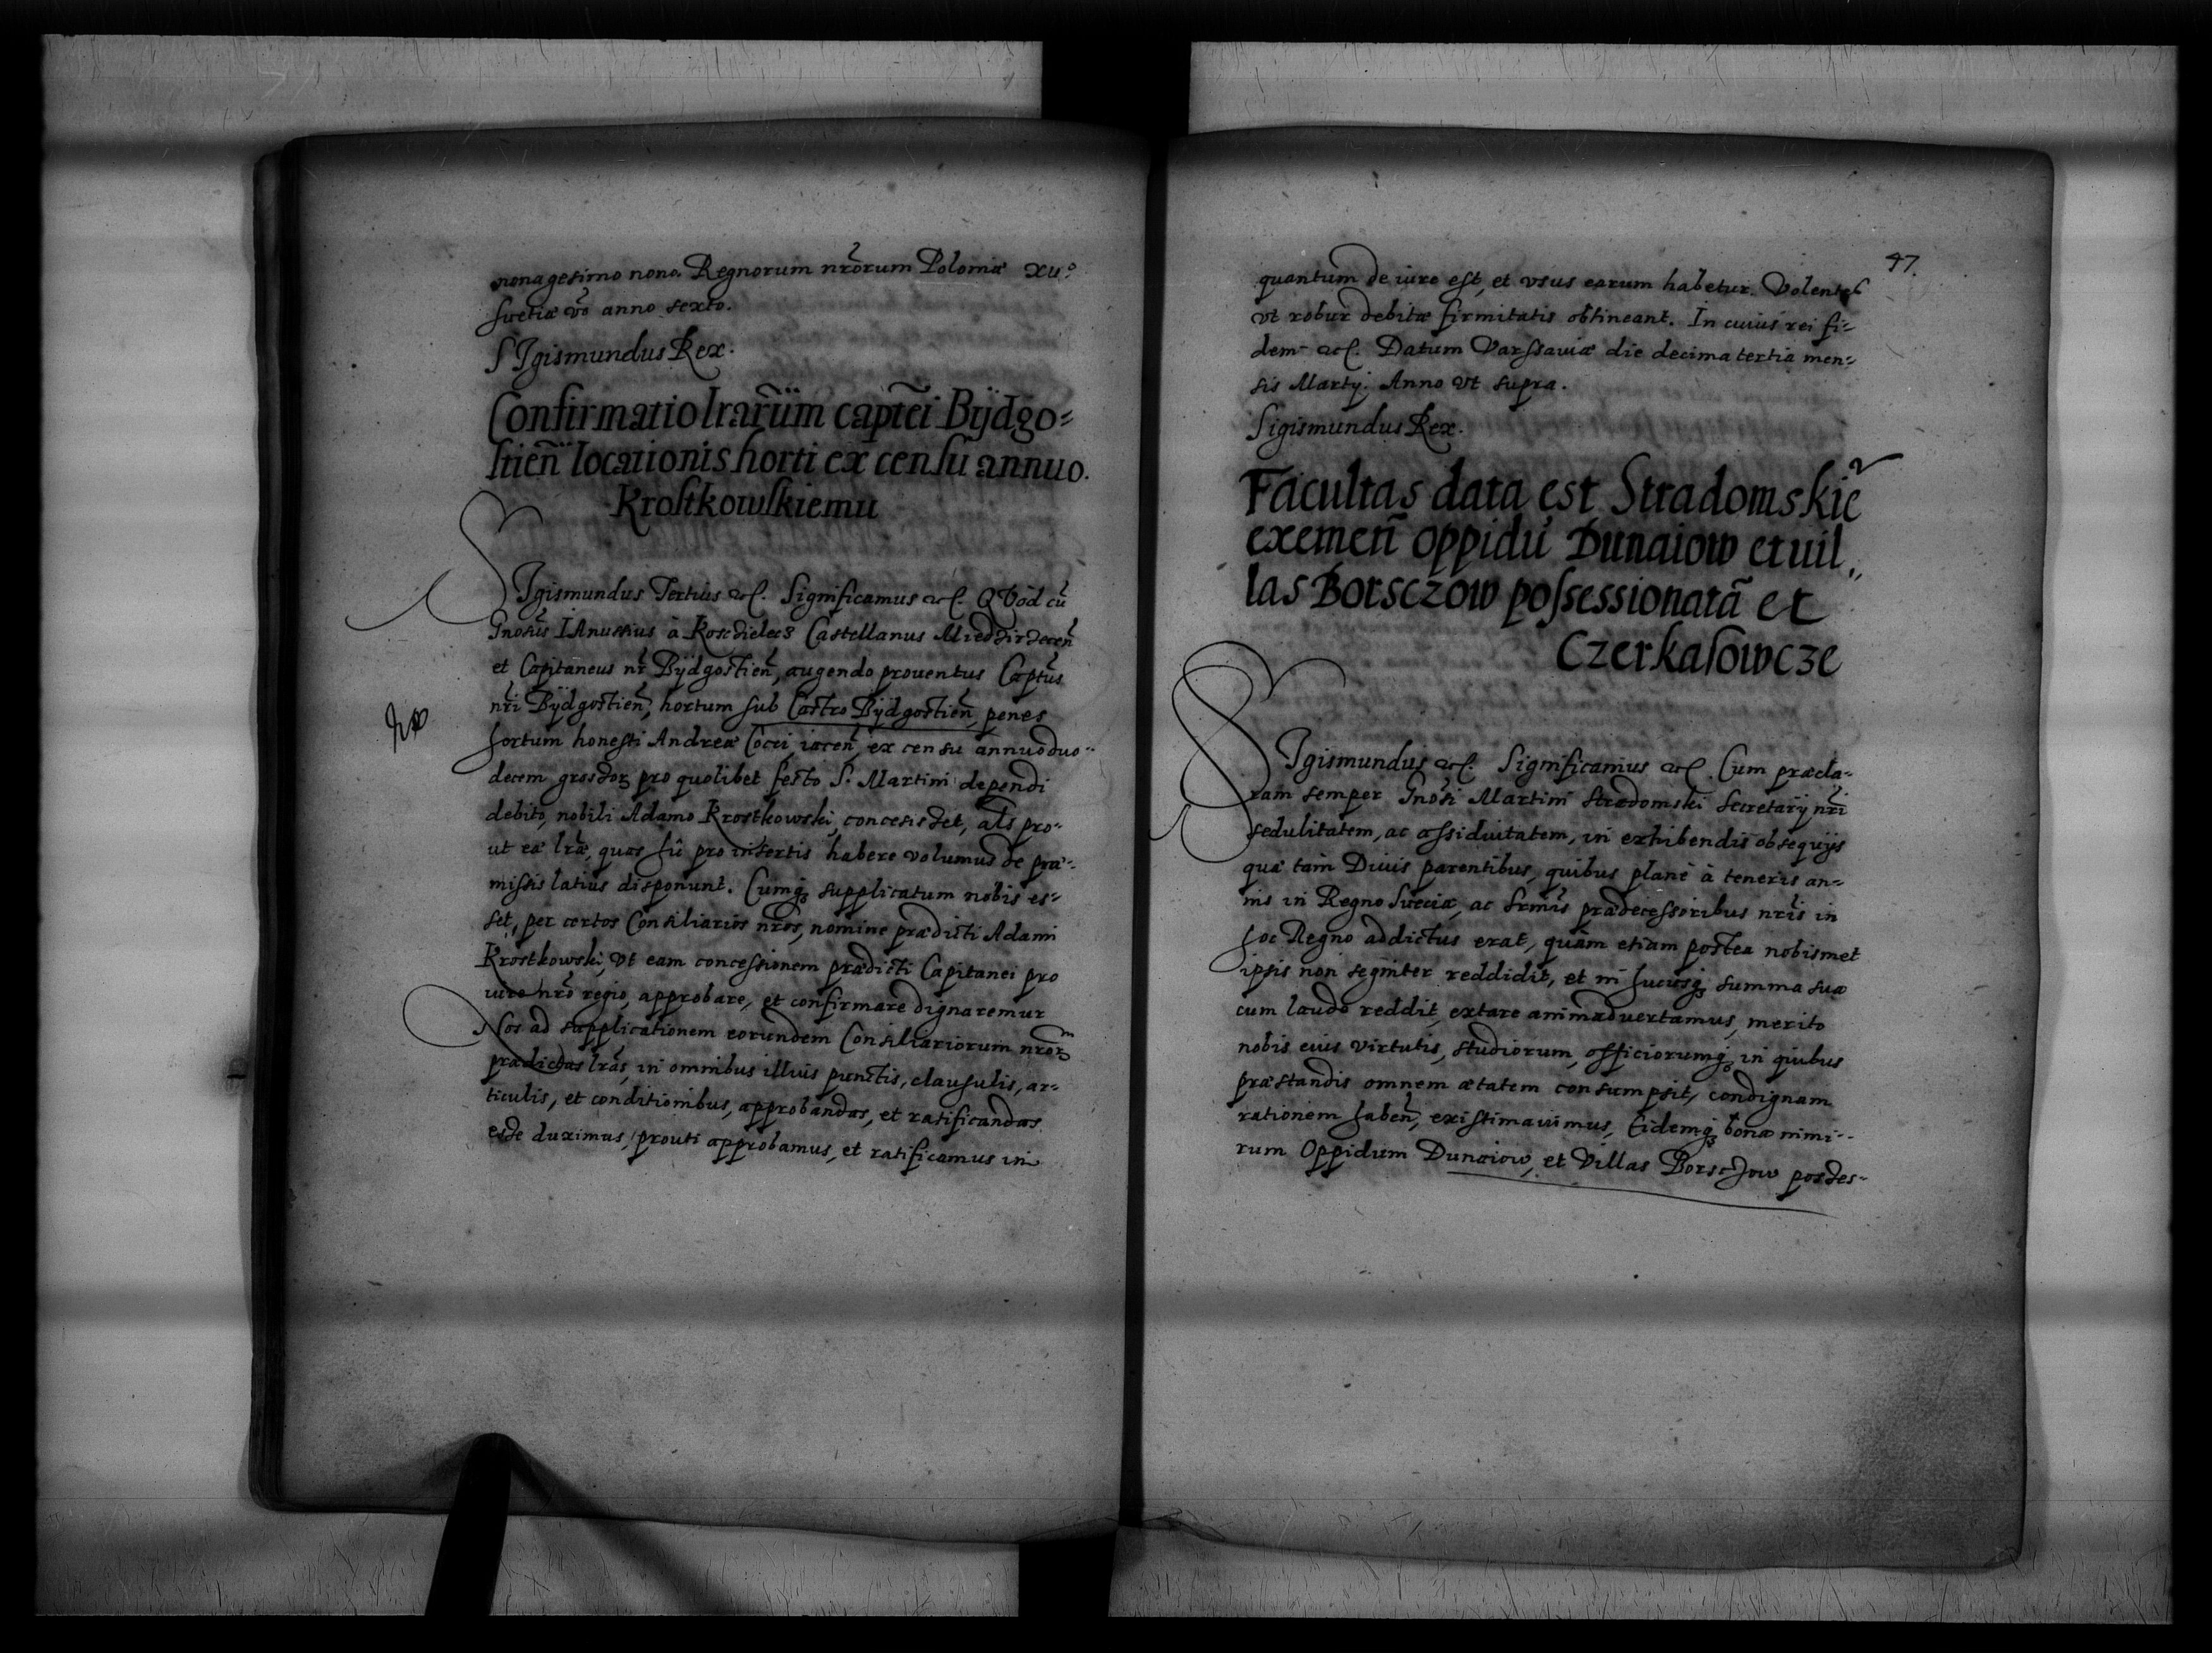 nonagesimo nono. Regnorum nrõrum Poloniæ xııº
Suetiæ võ anno sexto.
SIgismundus Rex.
Confirmatio lrarũm captei Bydgo=
stien̄ locationis horti ex censu annuo.
Krostkowskiemu
SIgismundus Tertius etc. Significamus etc. QVod cũ
Gnosus IAnussius à Koscielecz Castellanus Miedzirzecen̄
et Capitaneus nr̃ Bydgostien̄, augendo prouentus Captus
nr̃i Bydgostien̄, hortum sub Castro Bydgostien̄, penes
hortum honesti Andreæ Coci, iacen̄, ex censu annuo duo=
decem grossoꝝ pro quolibet festo S. Martini dependi
debito, nobili Adamo Krostkowski, concesisset, als pro=
ut eæ lræ, quas hic pro insertis habere volumus de præ=
missis latius disponunt. Cumqꝫ supplicatum nobis es=
set, per certos Consiliarios nros, nomine prædicti Adami
Krostkowski, vt eam concessionem prædicti Capitanei pro
iure nrõ regio, approbare, et confirmare dignaremur
Nos ad supplicationem eorundem Consiliariorum nroꝝ
prædictas lrãs, in omnibus illius punctis, clausulis, ar=
ticulis, et conditionibus, approbandas, et ratificandas
esse duximus, prouti approbamus, et ratificamus in
47.
quantum de iure est, et vsus earum habetur. Volentes
vt robur debitæ firmitatis obtineant. In cuius rei fi=
dem etc. Datum Varssauiæ die decima tertia men=
sis Martij. Anno vt supra.
Sigismundus Rex.
Facultas data est Stradomskie
exemen̄ oppidũ Dunaiow et uil„
las Borsczow possessionatã et
Czerkasowcze
SIgismundus etc. Significamus etc. Cum præcla=
ram semper Gnosi Martini Stradomski Secretarij nr̃i
sedulitatem, ac assiduitatem, in exhibendis obsequijs
quæ tam Diuis parentibus, quibus plane à teneris an=
nis in Regno Sueciæ, ac Srmis prædecessoribus nr̃is in
hoc Regno addictus erat, quàm etiam postea nobismet
ipsis non segniter reddidit, et in hucusqꝫ summa sua
cum laude reddit, extare animaduertamus, merito
nobis eius virtutis, studiorum, officiorumqꝫ in quibus
præstandis omnem ætatem consumpsit, condignam
rationem haben̄, existimauimus, Eidemqꝫ bona nimi=
rum Oppidum Dunaiow, et Villas Borsczow posses=